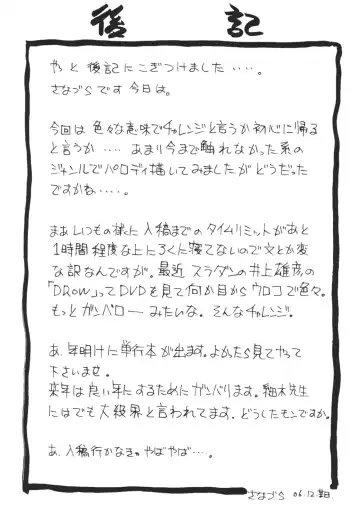 後記
やっと後記にこぎつけました‥‥。
さなづらです今日は。
今回は色々な意味でチャレンジと言うか初心に帰る
と言うか‥‥あまり今まで触れなかった系の
ジャンルでパロディ描いてみましたがどうだった
ですかね‥‥。
まあいつもの様に入稿までのタイムリミットがあと
1時間程度な上にろくに寝てないので文とか変
な訳なんですが。最近スラダンの井上雄彦の
「DRow」ってDVDを見て何か目からウロコで色々。
もっとガンバローみたいな。そんなチャレンジ。
あ、年明けに単行本が出ます。よかったら見てやって
下さいませ。
来年は良い年にするためにガンバります。細木先生
にはでも大殺界と言われてます。どうしたモンですか。
あ、入稿行かなきゃ。やばやば‥‥。
さなづら 06.12.